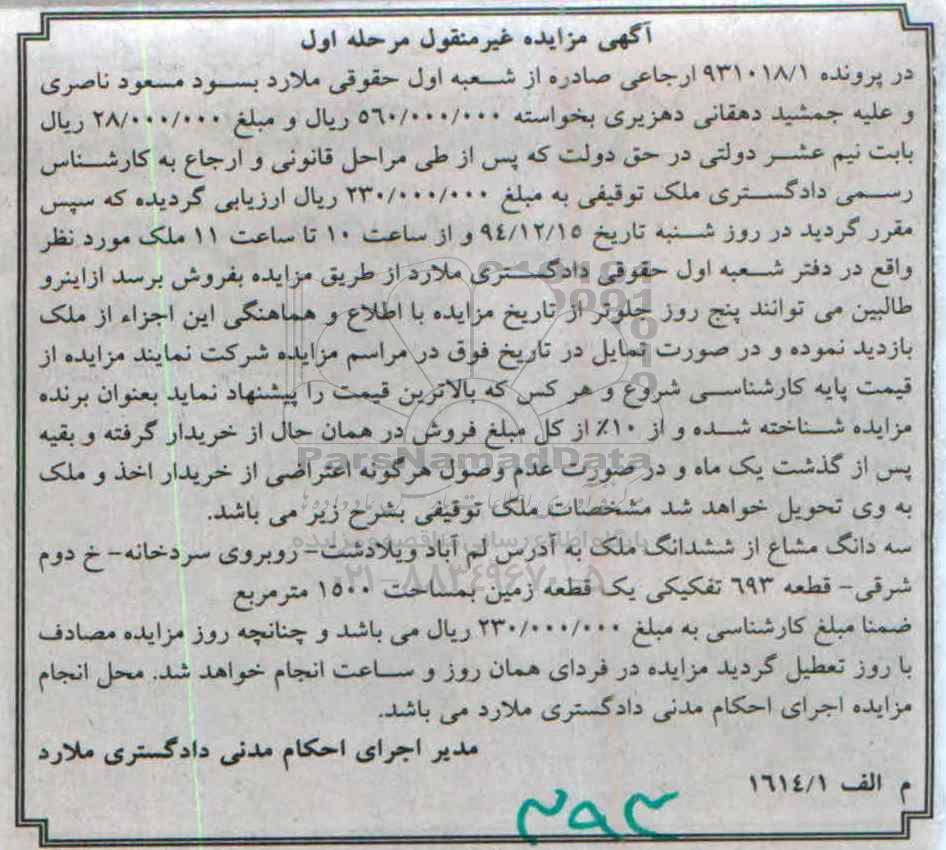 آگهی مزایده غیرمنقول مرحله اول
در پرونده ۹۳۱۰۱۸/۱ ارجاعی صادره از شعبه اول حقوقی ملارد بسود مسعود ناصری
و علیه جمشید دهقانی دهزیری بخواسته ۵۶۰/۰۰۰/۰۰۰ ریال و مبلغ ۲۸/۰۰۰/۰۰۰ ریال
بابت نیم عشر دولتی در حق دولت که پس از طی مراحل قانونی و ارجاع به کارشناس
رسمی دادگستری ملک توقیفی به مبلغ ۲۳۰/۰۰۰/۰۰۰ ریال ارزیابی گردیده که سپس
مقرر گردید در روز شنبه تاریخ ۹۴/۱۲/۱۵ و از ساعت ۱۰ تا ساعت ۱۱ ملک مورد نظر
واقع در دفتر شعبه اول حقوقی دادگستری ملارد از طریق مزایده بفروش برسد ازاینرو
طالبین می توانند پنج روز جلوتر از تاریخ مزایده با اطلاع و هماهنگی این اجزاء از ملک
بازدید نموده و در صورت تمایل در تاریخ فوق در مراسم مزایده شرکت نمایند مزایده از
قیمت پایه کارشناسی شروع و هر کس که بالاترین قیمت را پیشنهاد نماید بعنوان برنده
مزایده شناخته شده و از ۱۰٪ از کل مبلغ فروش در همان حال از خریدار گرفته و بقیه
ParsNamadData
پس از گذشت یک ماه و در صورت عدم وصول هرگونه اعتراضی از خریدار اخذ و ملک
به وی تحویل خواهد شد مشخصات ملک توقیفی بشرح زیر می باشد.
پایگاه اطلاع رسانی مناقصه و مزایده
سه دانگ مشاع از ششدانگ ملک به آدرس لم آباد ویلادشت- روبروی سردخانه- خ دوم
۰۲۱-۸۸۳۴۹۶۷۰-۵
شرقی- قطعه ۶۹۳ تفکیکی یک قطعه زمین بمساحت ۱۵۰۰ مترمربع
ضمنا مبلغ کارشناسی به مبلغ ۲۳۰/۰۰۰/۰۰۰ ریال می باشد و چنانچه روز مزایده مصادف
با روز تعطیل گردید مزایده در فردای همان روز و ساعت انجام خواهد شد. محل انجام
مزایده اجرای احکام مدنی دادگستری ملارد می باشد.
مدیر اجرای احکام مدنی دادگستری ملارد
م الف ۱۶۱۴/۱
۳۹۳